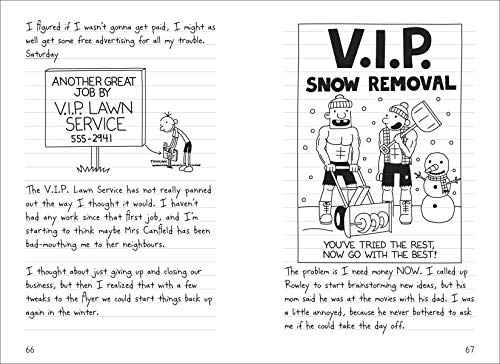 I figured if I wasn't gonna get paid, I might as
well get some free advertising for all my trouble.
Saturday
ANOTHER GREAT
JOB BY
V.I.P. LAWN
SERVICE
555-2941
The V.I.P. Lawn Service has not really panned
out the way I thought it would. I haven't
had any work since that first job, and I'm
starting to think maybe Mrs Canfield has been
bad-mouthing me to her neighbours.
I thought about just giving up and closing our
business, but then I realized that with a few
tweaks to the flyer we could start things back up
again in the winter.
66
V.I.P.
SNOW REMOVAL
YOU'VE TRIED THE REST,
NOW GO WITH THE BEST!
The problem is I need money NOW. I called up
Rowley to start brainstorming new ideas, but his
mom said he was at the movies with his dad. I was
a little annoyed, because he never bothered to ask
me if he could take the day off.
67